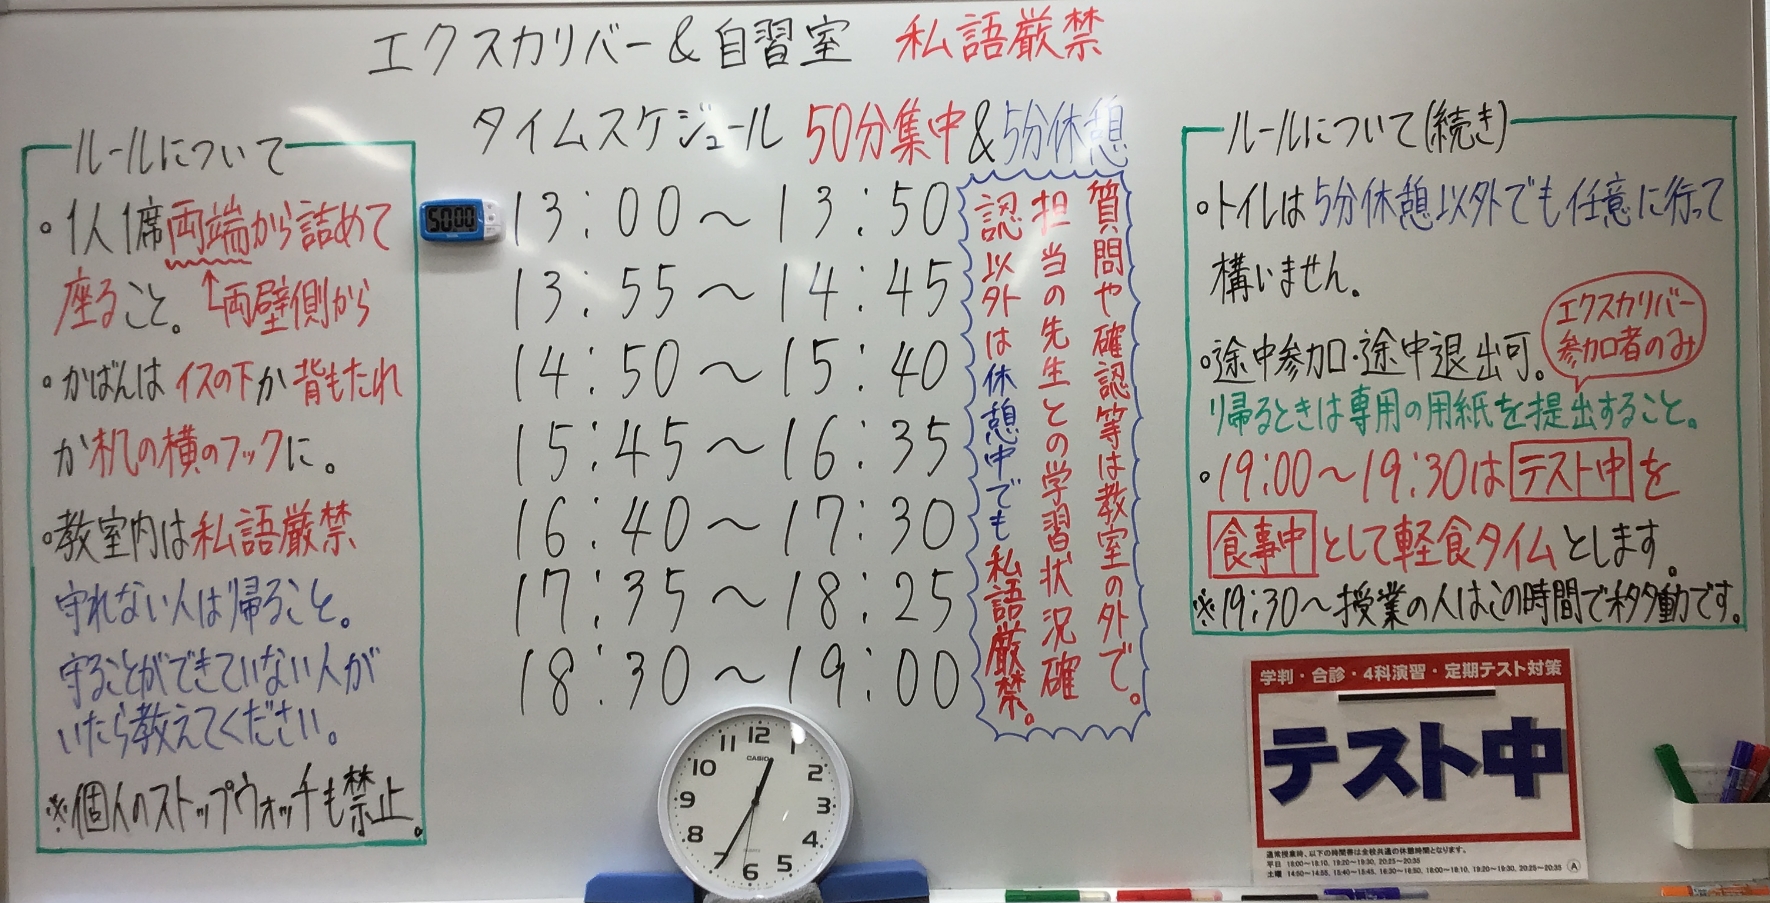 エクスカリバー&自習室 私語厳禁
タイムスケジュール 50分集中&5分休憩
ルールについて
・1人1席両端から詰めて
座ること。↑両壁側から
・かばんはイスの下か背もたれ
か机の横のフックに。
・教室内は私語厳禁
守れない人は帰ること。
守ることができていない人が
いたら教えてください。
※個人のストップウォッチも禁止。
50:00
13:00～13:50
13:55～14:45
14:50～15:40
15:45～16:35
16:40～17:30
17:35～18:25
18:30～19:00
質問や確認等は教室の外で。
担当の先生との学習状況確
認以外は休憩中でも私語厳禁。
ルールについて(続き)
・トイレは5分休憩以外でも任意に行って
構いません。
・途中参加・途中退出可。
エクスカリバー
参加者のみ
帰るときは専用の用紙を提出すること。
・19:00～19:30はテスト中を
食事中として軽食タイムとします。
※19:30～授業の人はこの時間で移動です。
学判・合診・4科演習・定期テスト対策
テスト中
通常授業時、以下の時間帯は全校共通の休憩時間となります。
平日 18:00～18:10, 19:20～19:30, 20:25～20:35
土曜 14:50～14:55, 15:40～15:45, 16:30～16:50, 18:00～18:10, 19:20～19:30, 20:25～20:35
A
CASIO
12
1
2
3
4
5
6
7
8
9
10
11